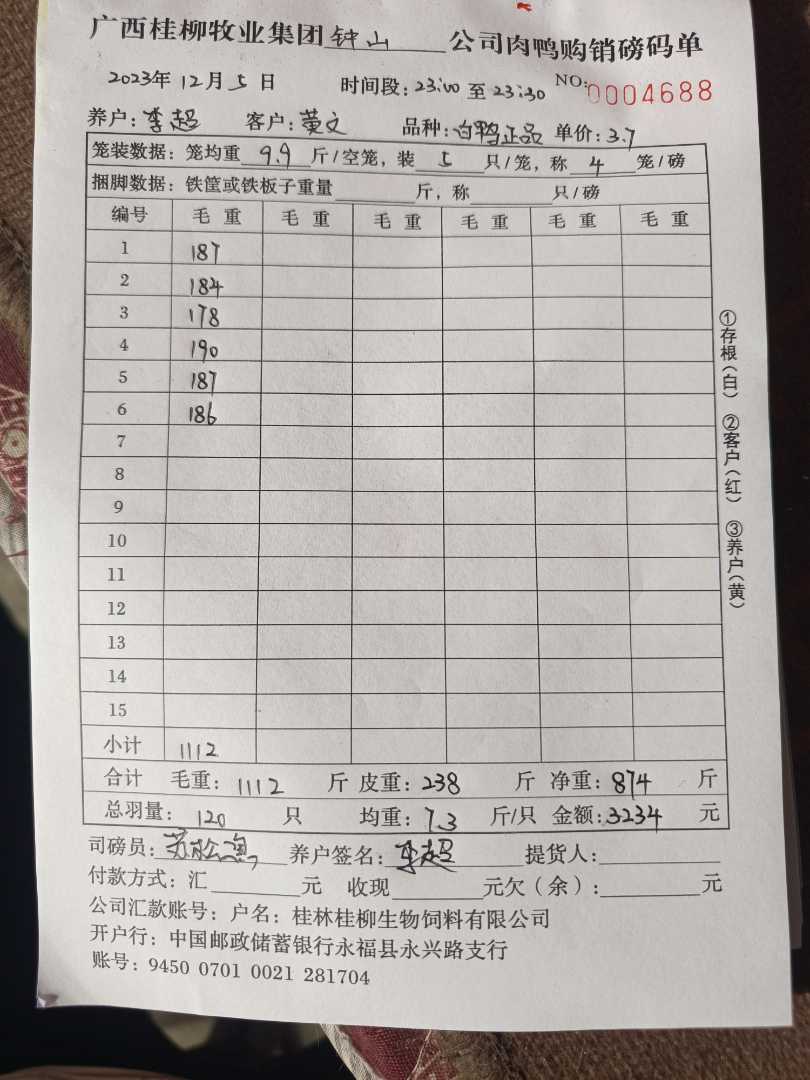 广西桂柳牧业集团钟山公司肉鸭购销磅码单
2023年12月5日 时间段:23:00至23:30 NO:0004688
养户:李超 客户:黄文 品种:白鸭正品 单价:3.7
笼装数据:笼均重9.9斤/空笼,装5只/笼,称4笼/磅
捆脚数据:铁筐或铁板子重量____斤,称____只/磅
编号 毛重 毛重 毛重 毛重 毛重 毛重
1 187
2 184
3 178
4 190
5 187
6 186
7
8
9
10
11
12
13
14
15
小计 1112
合计 毛重:1112斤 皮重:238斤 净重:874斤
总羽量:120只 均重:7.3斤/只 金额:3234元
司磅员: 养户签名:李超 提货人:
付款方式:汇____元 收现____元欠(余):____元
公司汇款账号:户名:桂林桂柳生物饲料有限公司
开户行:中国邮政储蓄银行永福县永兴路支行
账号:9450 0701 0021 281704
①存根(白) ②客户(红) ③养户(黄)